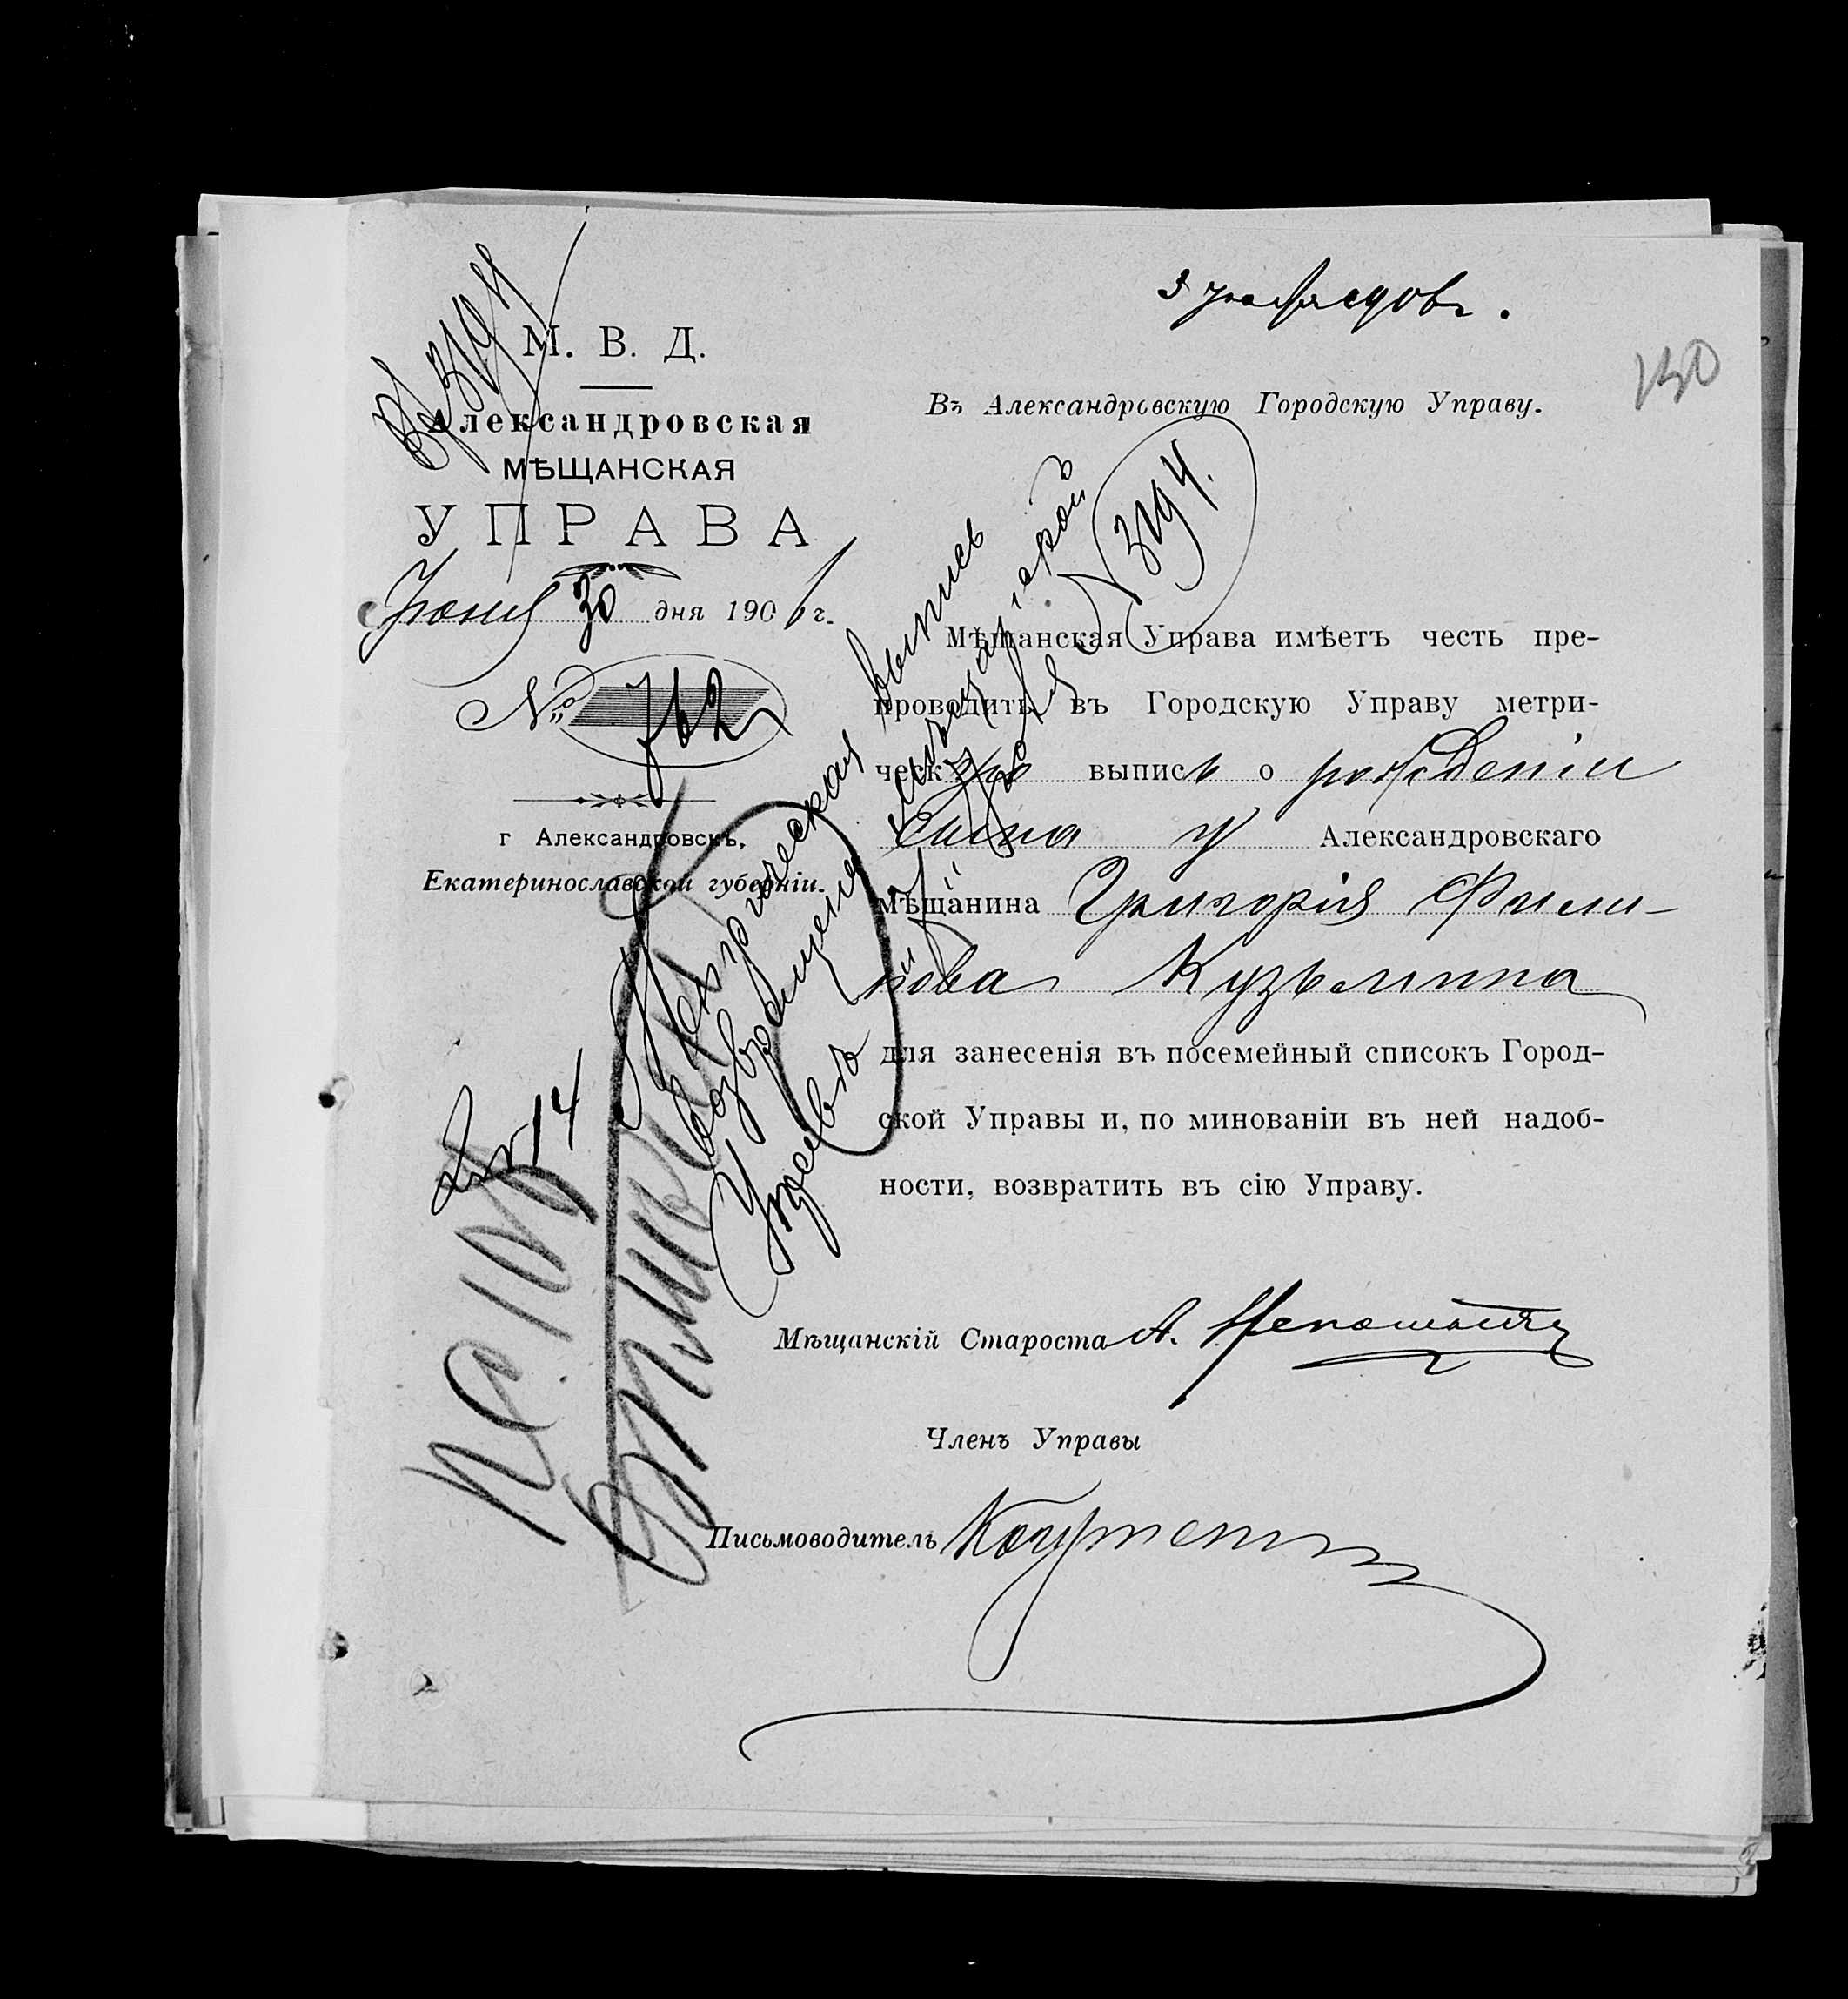 Вх 3194
М. В. Д.
Александровская
МѢЩАНСКАЯ
УПРАВА
Іюня 30 дня 1901 г.
№ 762
г Александровскъ,
Екатеринославской губерніи.
130
Въ Александровскую Городскую Управу.
Мѣщанская Управа имѣетъ честь пре-
проводить въ Городскую Управу метри-
ческую выпись о рожденіи
Сына у Александровскаго
мѣщанина Григорія Фили-
пова Кузьмина
для занесенія въ посемейный списокъ Город-
ской Управы и, по минованіи въ ней надоб-
ности, возвратить въ сію Управу.
Метрическая выпись
возвращена мѣщанской
Управѣ
N 3194.
14
Мѣщанскій Староста А.
Членъ Управы
Письмоводитель